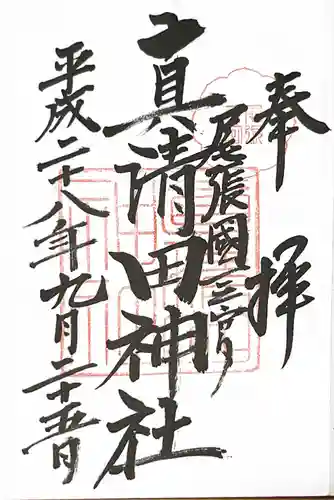 奉拝
尾張國一之宮
真清田神社
平成二十八年九月二十五日